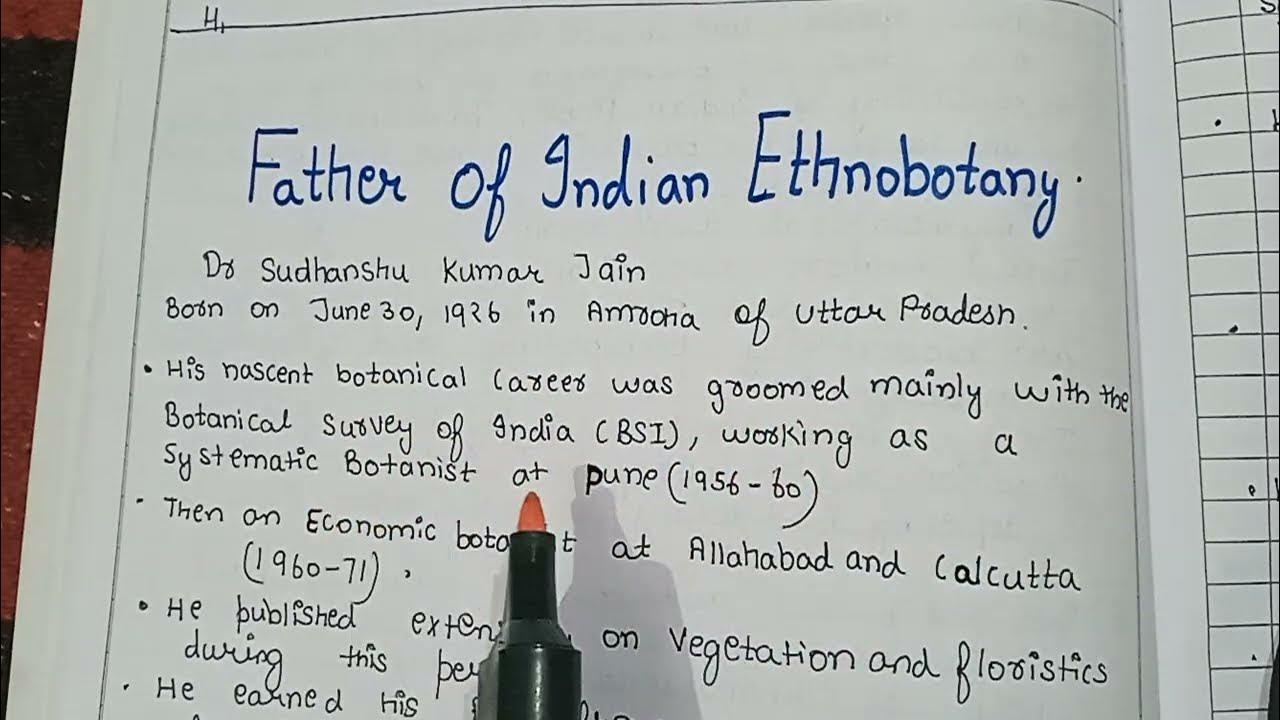 H,
Father of Indian Ethnobotany.
Dr Sudhanshu Kumar Jain
Born on June 30, 1926 in Amroha of Uttar Pradesh.
• His nascent botanical Career was groomed mainly with the
Botanical Survey of India (BSI), working as a
Systematic Botanist at pune (1956-60)
• Then an Economic at Allahabad and Calcutta
(1960-71).
• He published on vegetation and floristics
during this
• He earned his